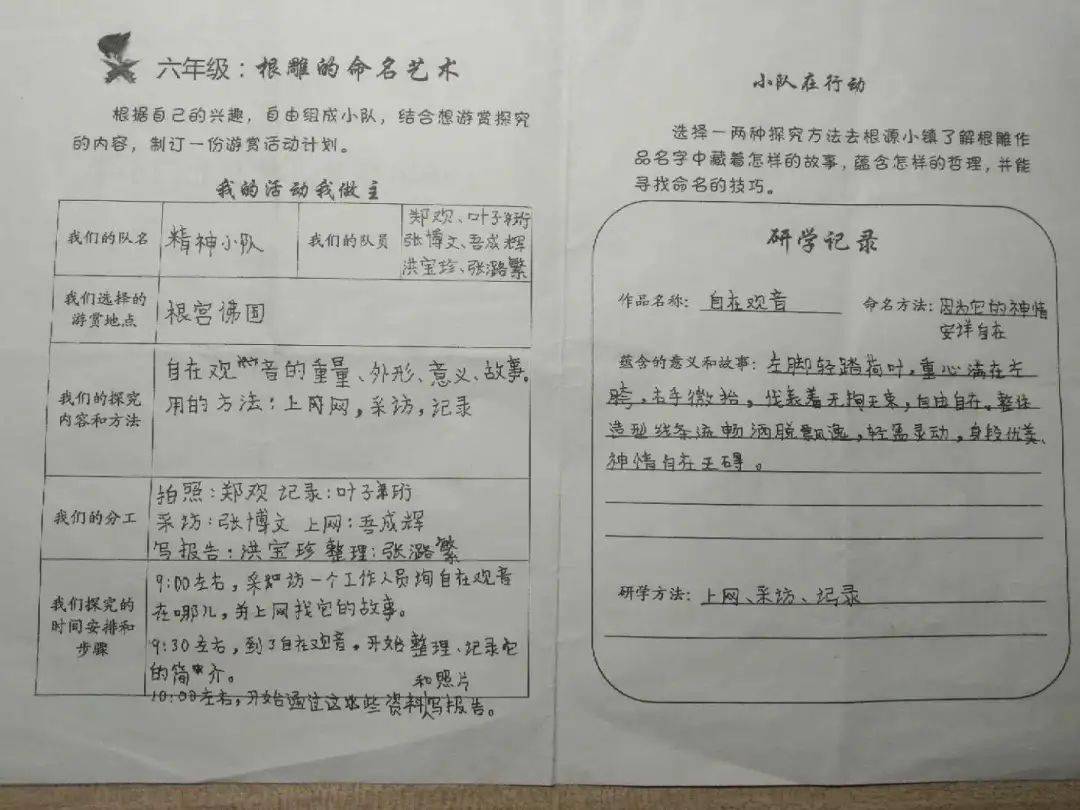 六年级：根雕的命名艺术
根据自己的兴趣，自由组成小队，结合想游赏探究
的内容，制订一份游赏活动计划。
我的活动我做主
我们的队名
精神小队
我们的队员
郑欢、叶子珩
张博文、吾成辉
洪宝珍、张潞繁
我们选择的
游赏地点
根宫佛国
我们的探究
内容和方法
自在观音的重量、外形、意义、故事。
用的方法：上网，采访，记录
我们的分工
拍照：郑欢 记录：叶子珩
采访：张博文 上网：吾成辉
写报告：洪宝珍 整理：张潞繁
我们探究的
时间安排和
步骤
9:00左右，采访一个工作人员询自在观音
在哪儿，并上网找它的故事。
9:30左右，到了自在观音。开始整理、记录它
的简介。
和照片
10:00左右，开始通过这些资料写报告。
小队在行动
选择一两种探究方法去根源小镇了解根雕作
品名字中藏着怎样的故事，蕴含怎样的哲理，并能
寻找命名的技巧。
研学记录
作品名称：自在观音 命名方法：因为它的神情
安详自在
蕴含的意义和故事：左脚轻踏荷叶，重心满在左
胯，右手微抬，代表着无拘无束，自由自在。整体
造型线条流畅洒脱飘逸，轻盈灵动，身段优美、
神情自在无碍。
研学方法：上网、采访、记录